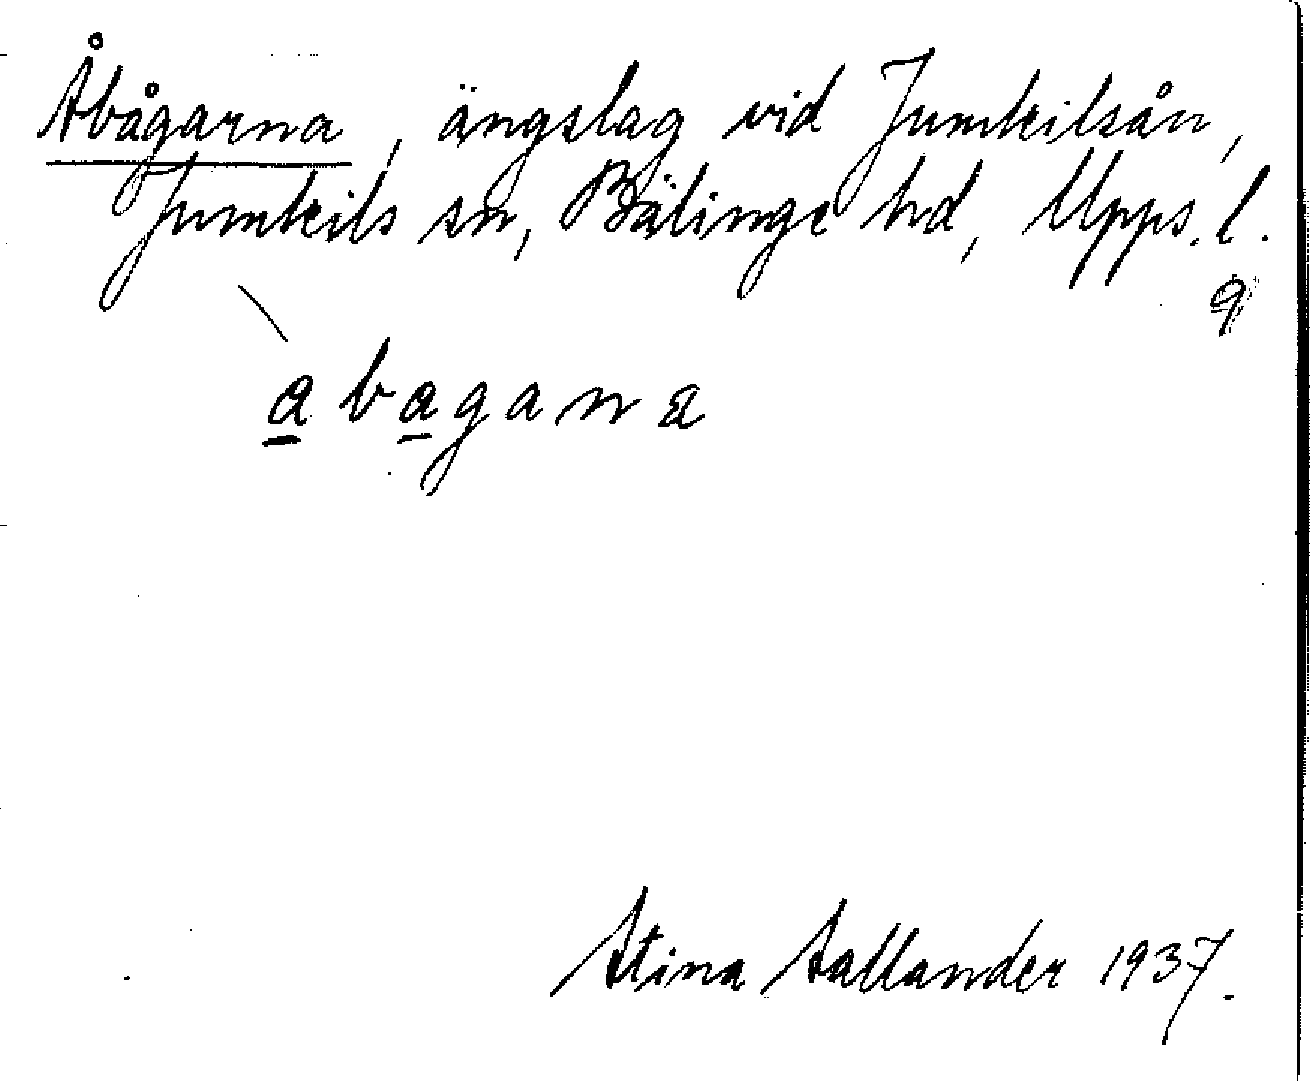 Åbågarna, ängslag vid Jumkilsån,
Jumkils sn, Bälinge hd, Upps. l.
a b a g a n a
Stina Sallander 1937.